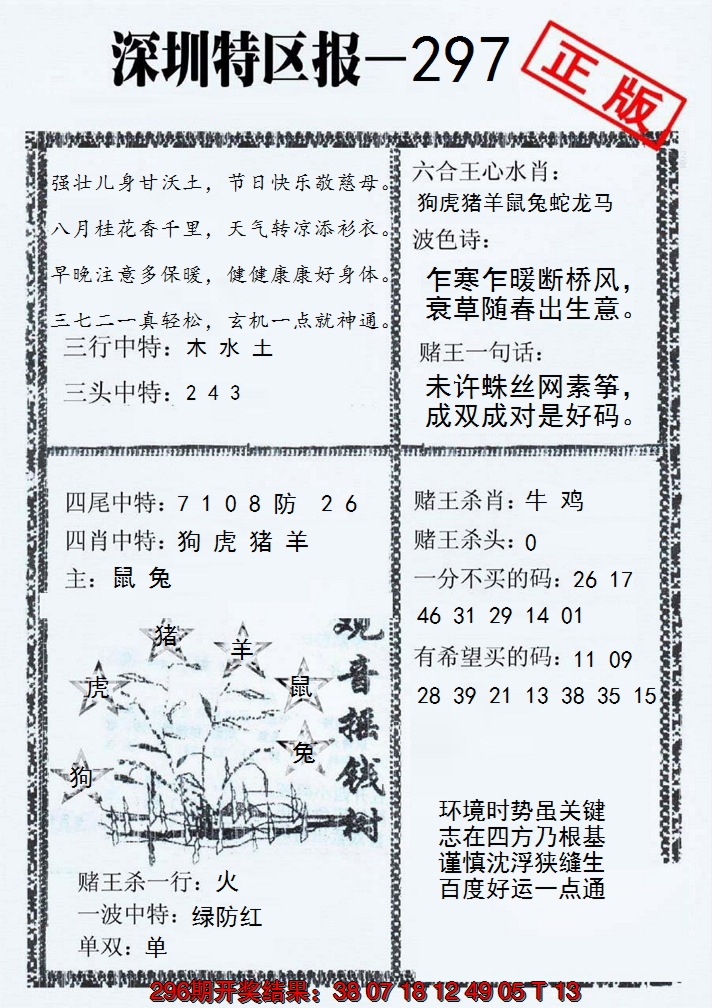 深圳特区报—297
正版
强壮儿身甘沃土，节日快乐敬慈母。
八月桂花香千里，天气转凉添衫衣。
早晚注意多保暖，健健康康好身体。
三七二一真轻松，玄机一点就神通。
三行中特：木 水 土
三头中特：2 4 3
六合王心水肖：
狗虎猪羊鼠兔蛇龙马
波色诗：
乍寒乍暖断桥风，
衰草随春出生意。
赌王一句话：
未许蛛丝网素筝，
成双成对是好码。
四尾中特：7 1 0 8 防 2 6
四肖中特：狗 虎 猪 羊
主：鼠 兔
猪
羊
虎
鼠
兔
狗
观音摇钱树
赌王杀一行：火
一波中特：绿防红
单双：单
赌王杀肖：牛 鸡
赌王杀头：0
一分不买的码：26 17
46 31 29 14 01
有希望买的码：11 09
28 39 21 13 38 35 15
环境时势虽关键
志在四方乃根基
谨慎沈浮狭缝生
百度好运一点通
296期开奖结果：38 07 18 12 49 05 T 13